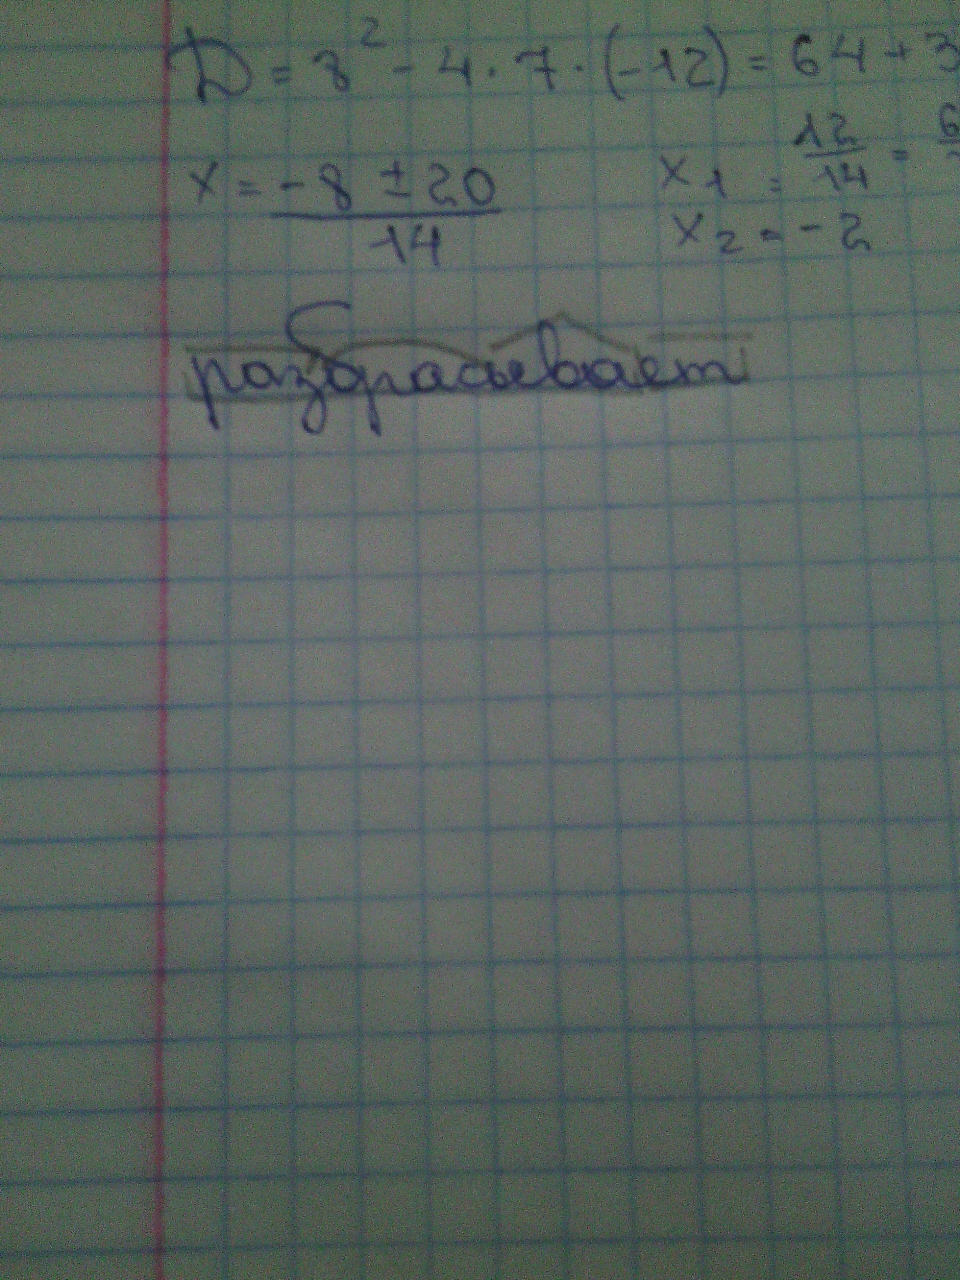 D = 8² - 4 · 7 · (-12) = 64 + 3
x = (-8 ± 20)/14 x₁ = 12/14 = 6
x₂ = -2
разбрасывает